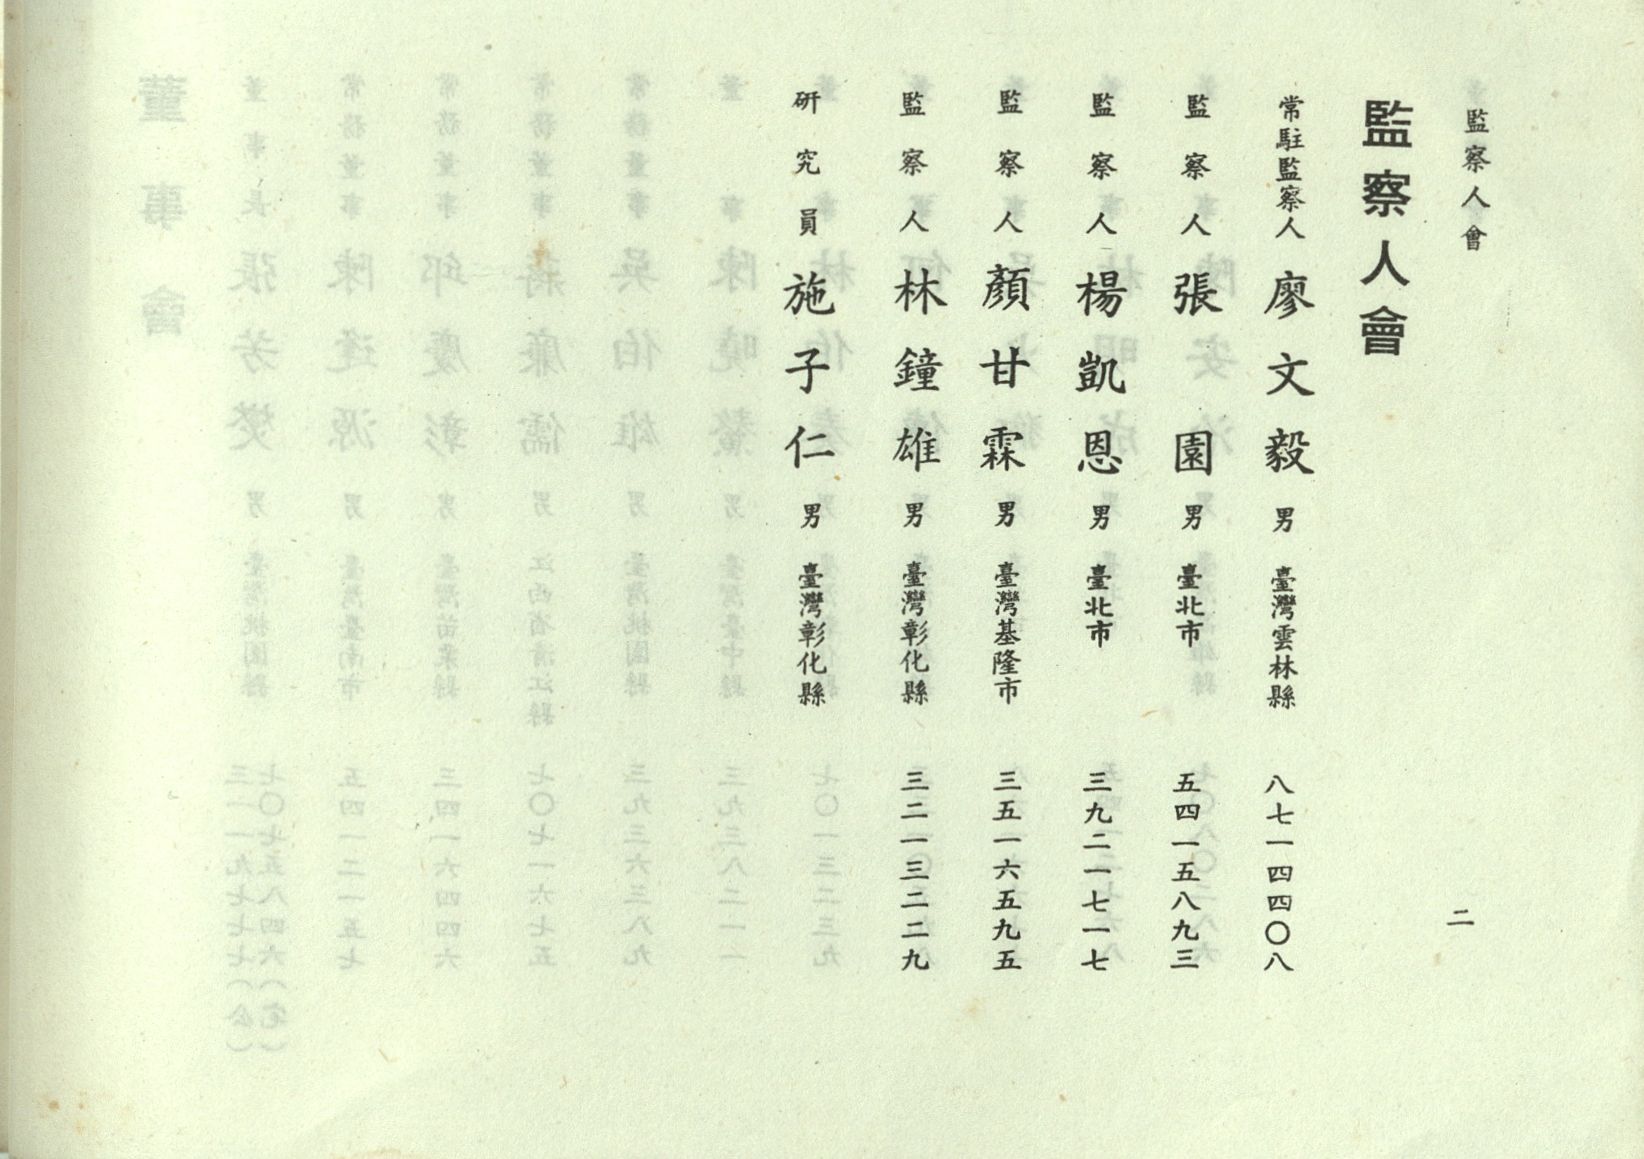 監察人會
二
監察人會
常駐監察人 廖文毅 男 臺灣雲林縣 八七一四四〇八
監察人 張園 男 臺北市 五四一五八九三
監察人 楊凱恩 男 臺北市 三九二一七一七
監察人 顏甘霖 男 臺灣基隆市 三五一六五九五
監察人 林鐘雄 男 臺灣彰化縣 三二一三二二九
研究員 施子仁 男 臺灣彰化縣